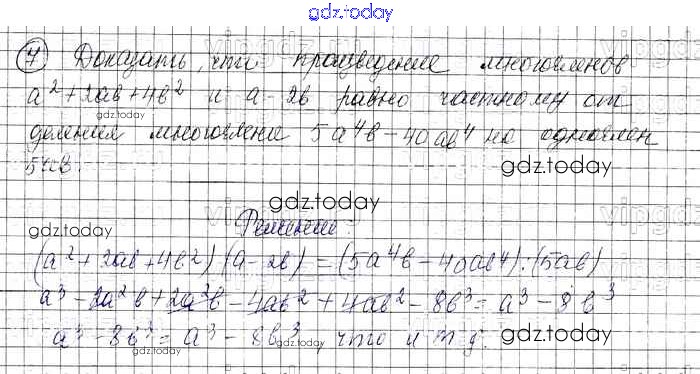 gdz.today
7 Доказать, что произведение многочленов
a² + 2ab + 4b² и a - 2b равно частному от
gdz.today
деления многочлена 5a⁴b - 40ab⁴ на одночлен
5ab.
gdz.today
gdz.today
gdz.today
Решение:
(a² + 2ab + 4b²)(a - 2b) = (5a⁴b - 40ab⁴):(5ab)
a³ - 2a²b + 2a²b - 4ab² + 4ab² - 8b³ = a³ - 8b³
a³ - 8b³ = a³ - 8b³, что и т д.
gdz.today
gdz.today
gdz.today